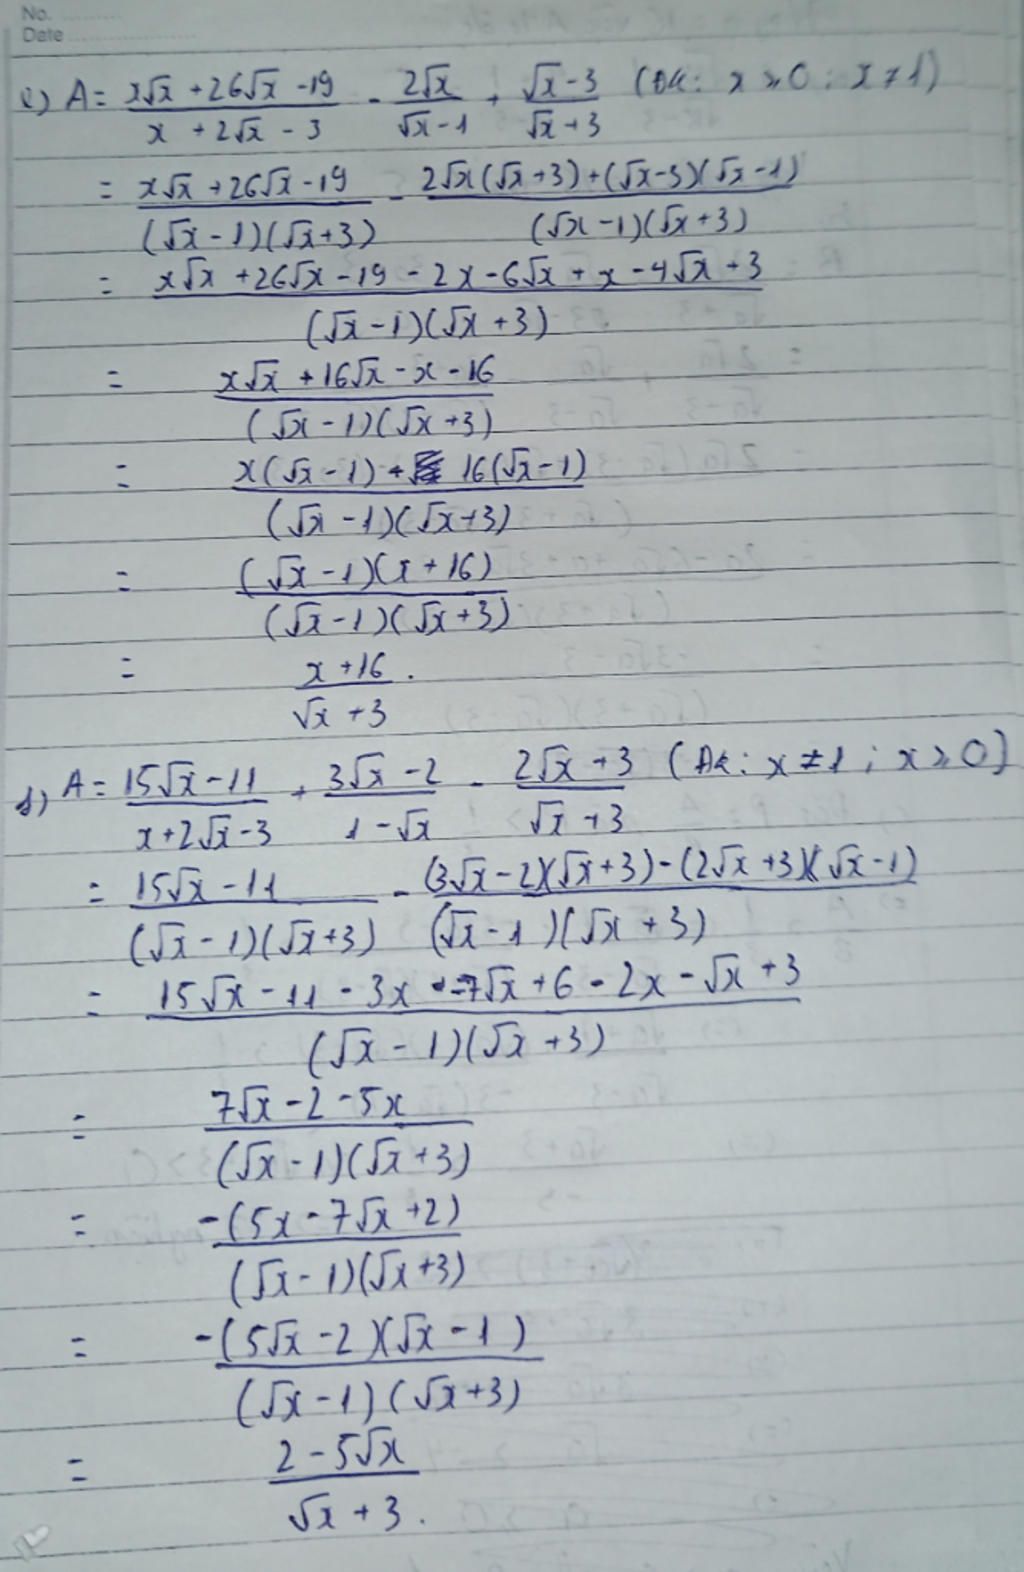 No.
Date
e) A = (x√x + 26√x - 19)/(x + 2√x - 3) - 2√x/(√x - 1) + (√x - 3)/(√x + 3) (ĐK: x ≥ 0 ; x ≠ 1)
= (x√x + 26√x - 19)/((√x - 1)(√x + 3)) - (2√x(√x + 3) + (√x - 3)(√x - 1))/((√x - 1)(√x + 3))
= (x√x + 26√x - 19 - 2x - 6√x + x - 4√x + 3)/((√x - 1)(√x + 3))
= (x√x + 16√x - x - 16)/((√x - 1)(√x + 3))
= (x(√x - 1) + 16(√x - 1))/((√x - 1)(√x + 3))
= ((√x - 1)(x + 16))/((√x - 1)(√x + 3))
= (x + 16)/(√x + 3).
f) A = (15√x - 11)/(x + 2√x - 3) + (3√x - 2)/(1 - √x) - (2√x + 3)/(√x + 3) (ĐK: x ≠ 1 ; x ≥ 0)
= (15√x - 11)/((√x - 1)(√x + 3)) - ((3√x - 2)(√x + 3) - (2√x + 3)(√x - 1))/((√x - 1)(√x + 3))
= (15√x - 11 - 3x - 7√x + 6 - 2x - √x + 3)/((√x - 1)(√x + 3))
= (7√x - 2 - 5x)/((√x - 1)(√x + 3))
= -(5x - 7√x + 2)/((√x - 1)(√x + 3))
= -(5√x - 2)(√x - 1)/((√x - 1)(√x + 3))
= (2 - 5√x)/(√x + 3).